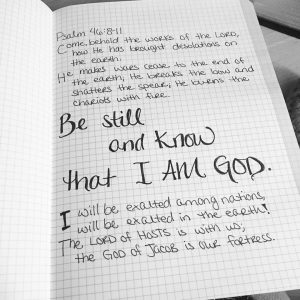 Psalm 46:8-11
Come, behold the works of the LORD,
how He has brought desolations on
the earth.
He makes wars cease to the end of
the earth; He breaks the bow and
shatters the spear; He burns the
chariots with fire.
Be still
and Know
that I AM GOD.
I will be exalted among nations,
will be exalted in the earth!
The LORD of HOSTS is with us;
the GOD of Jacob is our fortress.